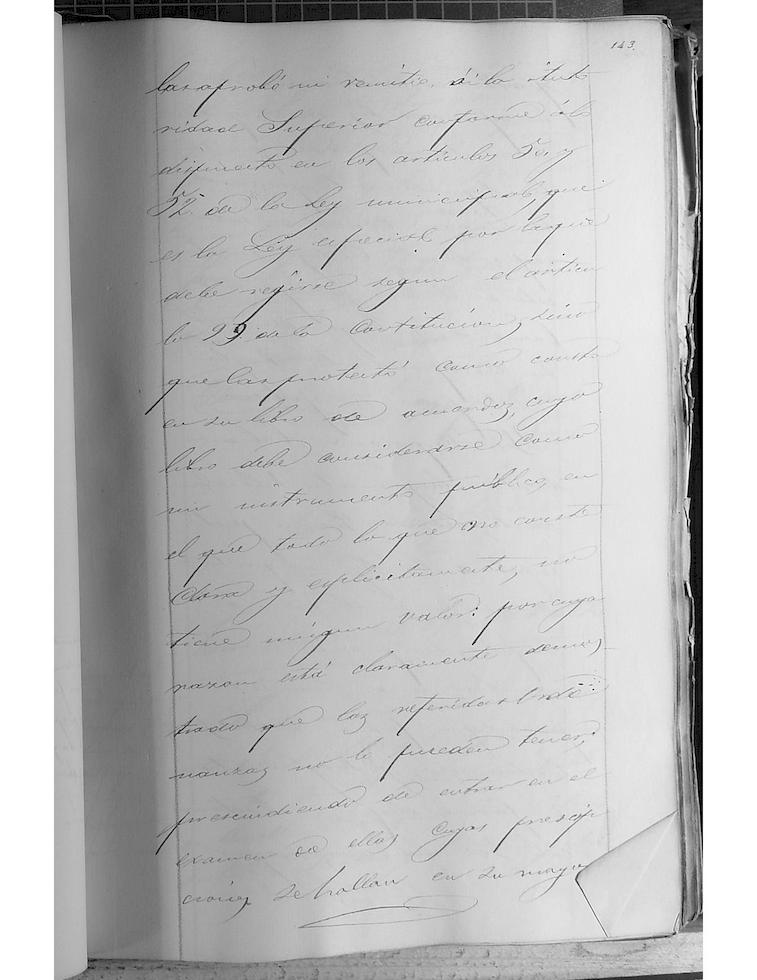 143.
las aprobó ni remitió á la Auto
ridad Superior conforme á lo
dispuesto en los artículos 50, y
52. de la Ley municipal, que
es la Ley especial por la que
debe regirse segun el artícu
lo 99. de la Constitucion, sino
que las protestó como consta
en su libro de acuerdos, cuyo
libro debe considerarse como
un instrumento publico, en
el que todo lo que no conste
clara y esplicitamente, no
tiene ningun valor: por cuya
razon está claramente demos
trado que las referidas Orde
nanzas no lo pueden tener;
prescindiendo de entrar en el
examen de ellas cuyas prescip
ciones se hallan en su mayo